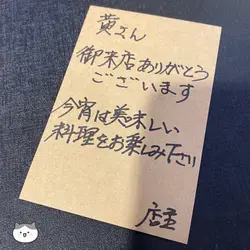 黄さん
御来店ありがとう
ございます
今宵は美味しい
料理をお楽しみ下さい
店主